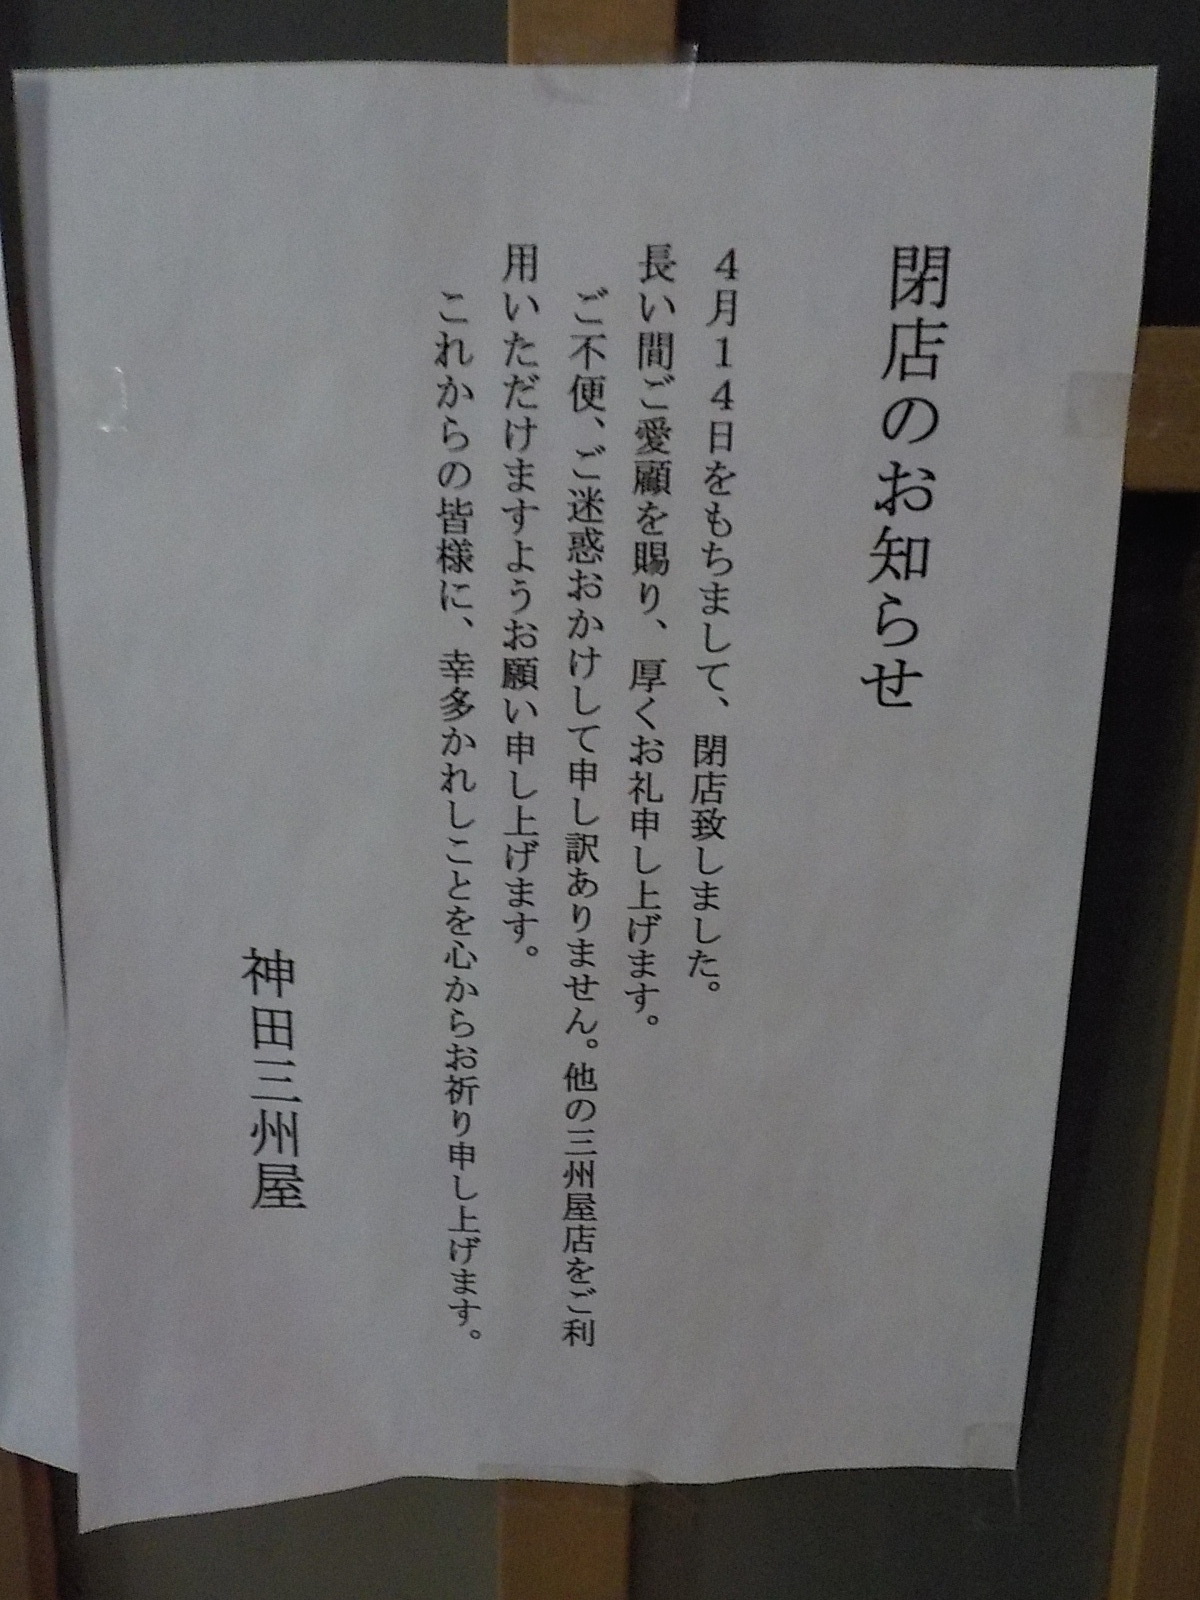 閉店のお知らせ
４月１４日をもちまして、閉店致しました。
長い間ご愛顧を賜り、厚くお礼申し上げます。
ご不便、ご迷惑おかけして申し訳ありません。他の三州屋店をご利
用いただけますようお願い申し上げます。
これからの皆様に、幸多かれしことを心からお祈り申し上げます。
神田三州屋